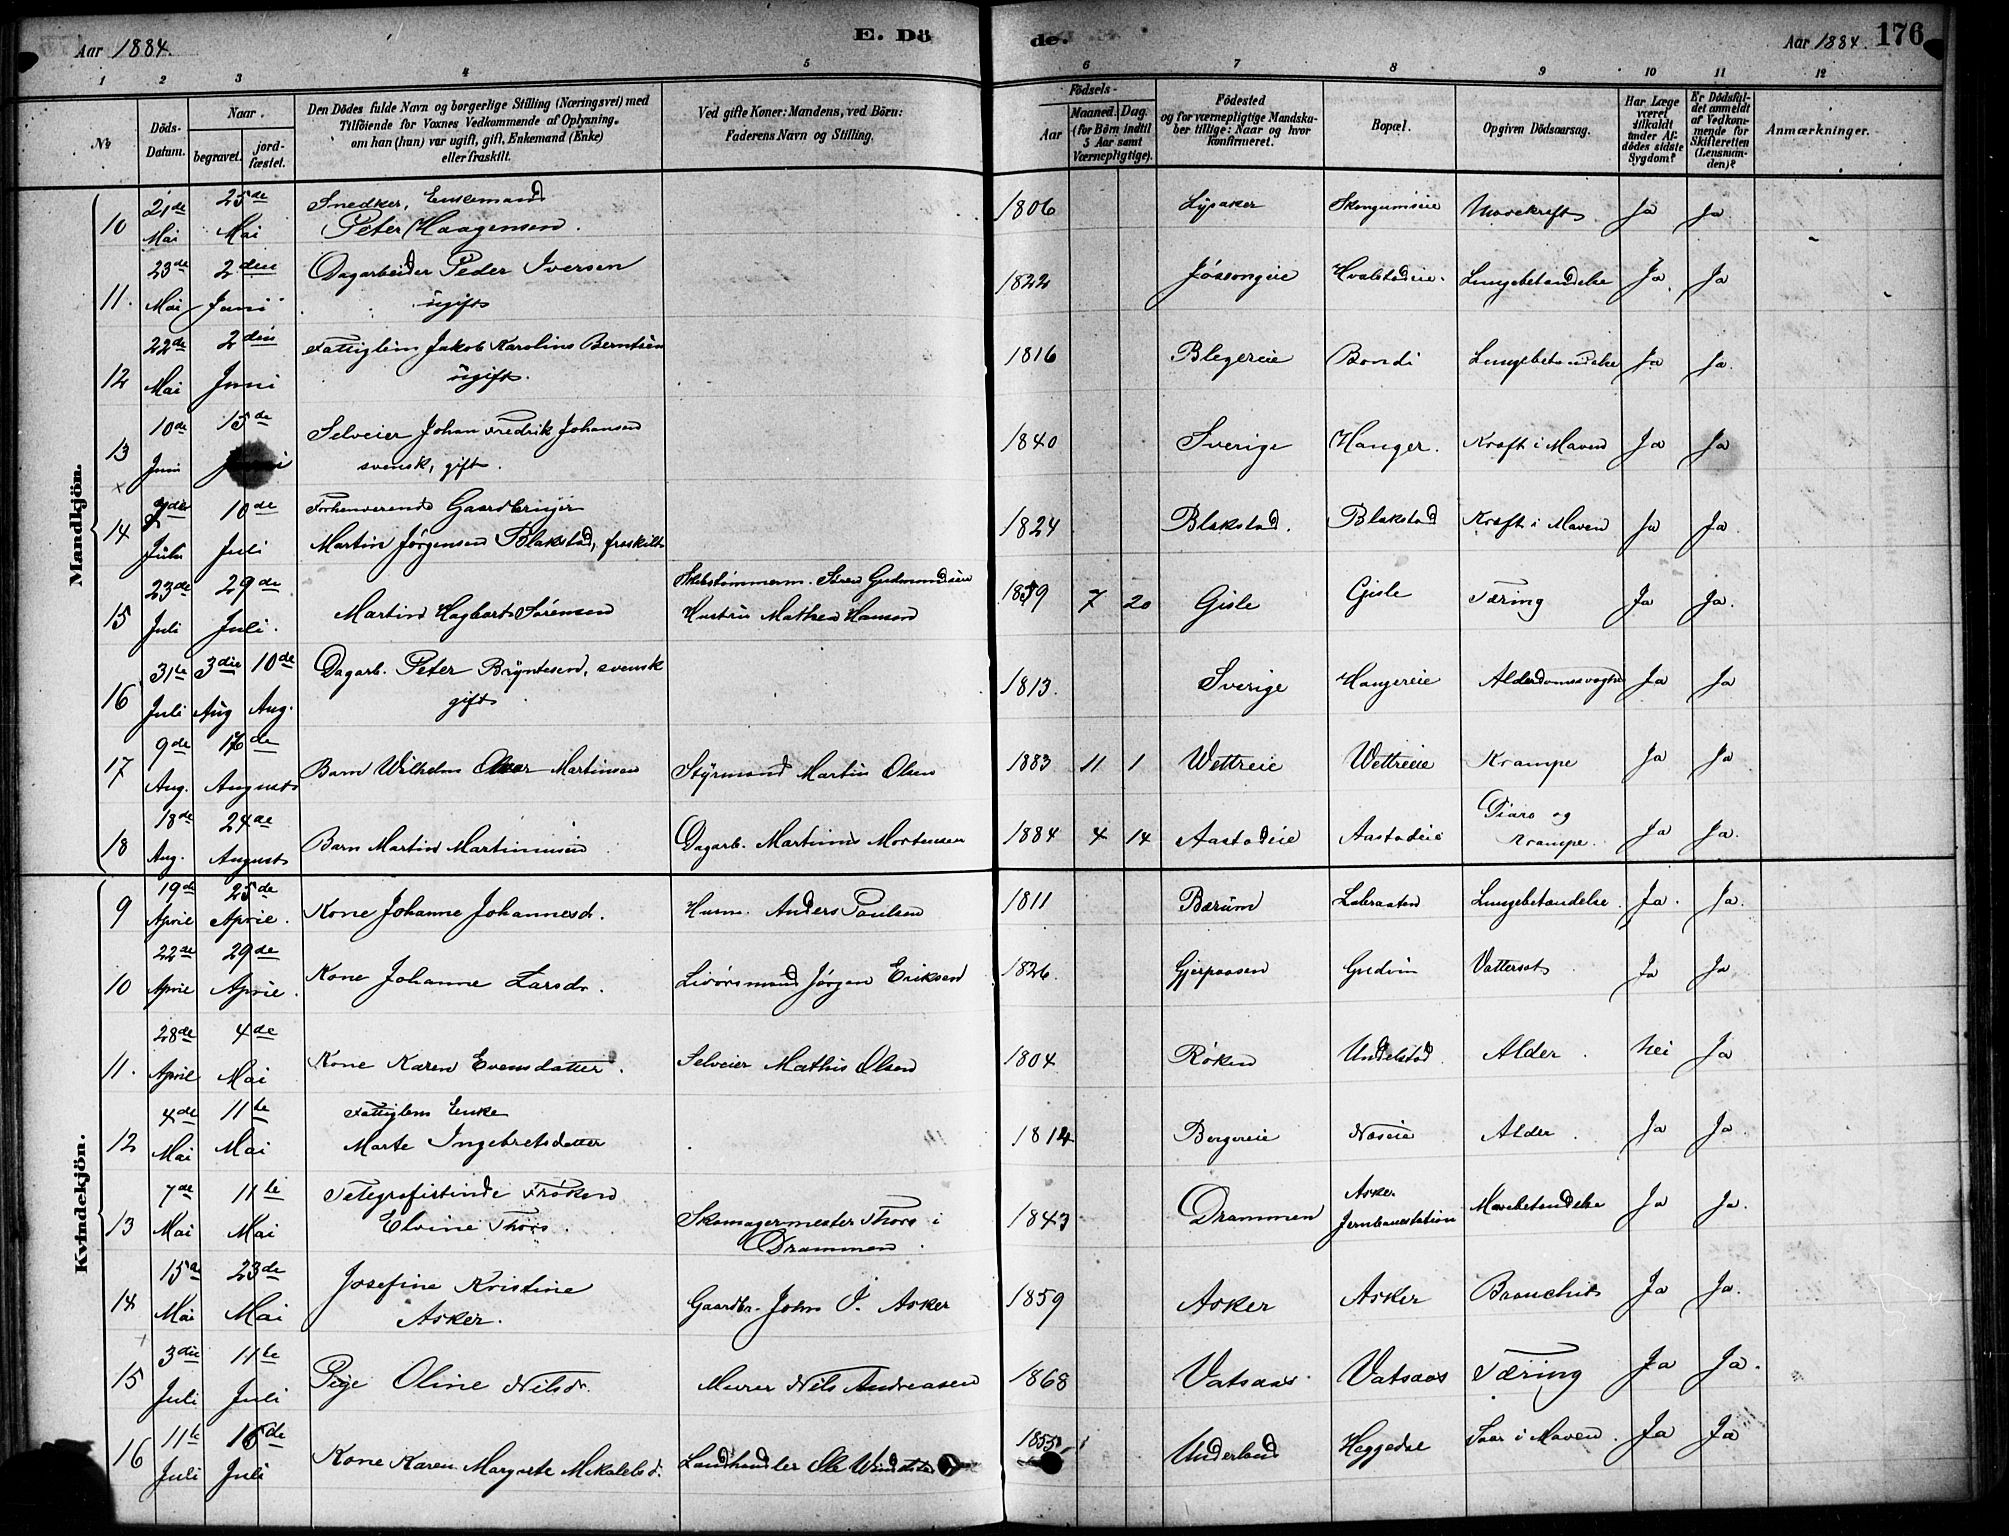 Aar 1884.
E. Dö
de.
Aar 1884.
176
1 2 3 4 5 6 7 8 9 10 11 12
№
Döds-Datum.
Naar.
begravet.
jordfæstet.
Den Dödes fulde Navn og borgerlige Stilling (Næringsvei) med
Tilföiende for Voxnes Vedkommende af Oplysning,
om han (hun) var ugift, gift, Enkemand (Enke)
eller fraskilt.
Ved gifte Koner: Mandens, ved Börn:
Faderens Navn og Stilling.
Födsels-
Aar
Maaned. Dag.
(for Börn indtil
5 Aar samt
Værnepligtige).
Födested
og for værnepligtige Mandskaber tillige: Naar og hvor
konfirmeret.
Bopæl.
Opgiven Dödsaarsag.
Har Læge
været
tilkaldt
under Afdödes sidste
Sygdom?
Er Dödsfaldet anmeldt
af Vedkommende for
Skifteretten
(Lensmanden)?
Anmærkninger.
Mandkjön.
10 21de Mai 25de Mai Snedker, Enkemand
Peter Haagensen. 1806 Lysaker Ja Ja
11. 23de Mai 2den Juni Dagarbeider Peder Iversen
ugift 1822 Hvalstadeie. Lungebetændelse Ja Ja
12 22de Mai 2den Juni Fattiglem Jakob Karolius Berntsen
ugift. 1816 Blegereie Bondi Lungebetændelse Ja Ja.
13 10de Juni 15de Juni Selveier Johan Fredrik Johansen
svensk, gift. 1840 Sverige Hanger. Kræft i Maven Ja Ja
14 Juli 10de Juli Forhenværende Gaardbruger
Martin Jørgensen Blakstad, fraskilt 1824 Blakstad. Blakstad Kræft i Maven Ja Ja.
15 23de Juli 29de Juli. Martin Hagbart Sørensen Skibstømmerm. Søren Gudmundsen
Hustru Mathea Hansen 7 20 Gisle Gisle Tæring Ja Ja.
16 31te Juli 3die Aug 10de Aug. Dagarb. Peter Bryntesen, svensk
gift 1813. Sverige Hangereie Alderdomssvaghed Ja Ja
17 9de Aug. August Barn Wilhelm Martinsen Styrmand Martin Olsen 1883 11 1 Wettreie Wettreeie Krampe Ja Ja
18 18de Aug. 24de August Barn Martin Martiniusen Dagarb. Martinus Mortensen 1884 4 14 Aastadeie Aastadeie Diare og
Krampe. Ja Ja.
Kvindekjön.
9 19de April 25de April. Kone Johanne Johannesd. Husm. Anders Paulsen 1811 Bærum Løkraaten Lungebetændelse. Ja. Ja.
10 22de April 29de April. Kone Johanne Larsdr. Livørsmand Jørgen Eriksen 1826. Gjerpaasen Gudim Vattersot Ja Ja
11. 28de April 4de Mai Kone Karen Evensdatter. Selveier Mathis Olsen 1804 Røken Undelstad Alder. Nei Ja
12 4de Mai 11te Mai Fattiglem Enke
Marte Ingebretsdatter 1814 Bergereie Næseie Alder. Ja Ja.
13 7de Mai 11te Mai Telegrafistinde Frøken
Elvine Thors. Skomagermester Thors i
Drammen. 1843 Drammen Asker
Jernbanestation Mavebetændelse Ja Ja.
14 15de Mai 23de Mai Josefine Kristine
Asker. Gaardbr. John O. Asker 1859 Asker Asker Bronchit Ja Ja.
15 3die Juli 11te Juli Pige Oline Nilsdr. Murer Nils Andreasen 1868 Vatsaas Vatsaas Tæring Ja Ja.
16 11te Juli 16de Juli Kone Karen Margrete Mikalelsd. Landhandler Ole 1855 Underland Heggedal Saar i Maven. Ja Ja